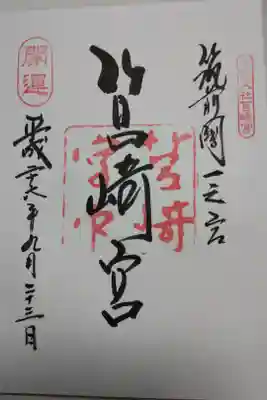 筑前國一之宮
筥崎宮
開運
平成二十八年九月二十三日